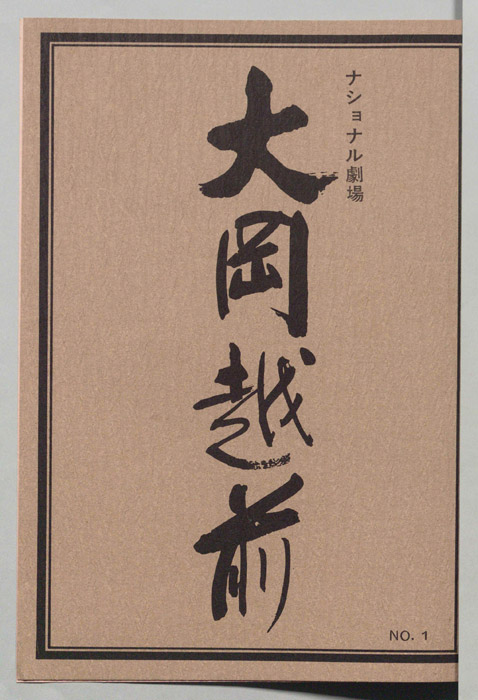 ナショナル劇場
大岡越前
NO. 1